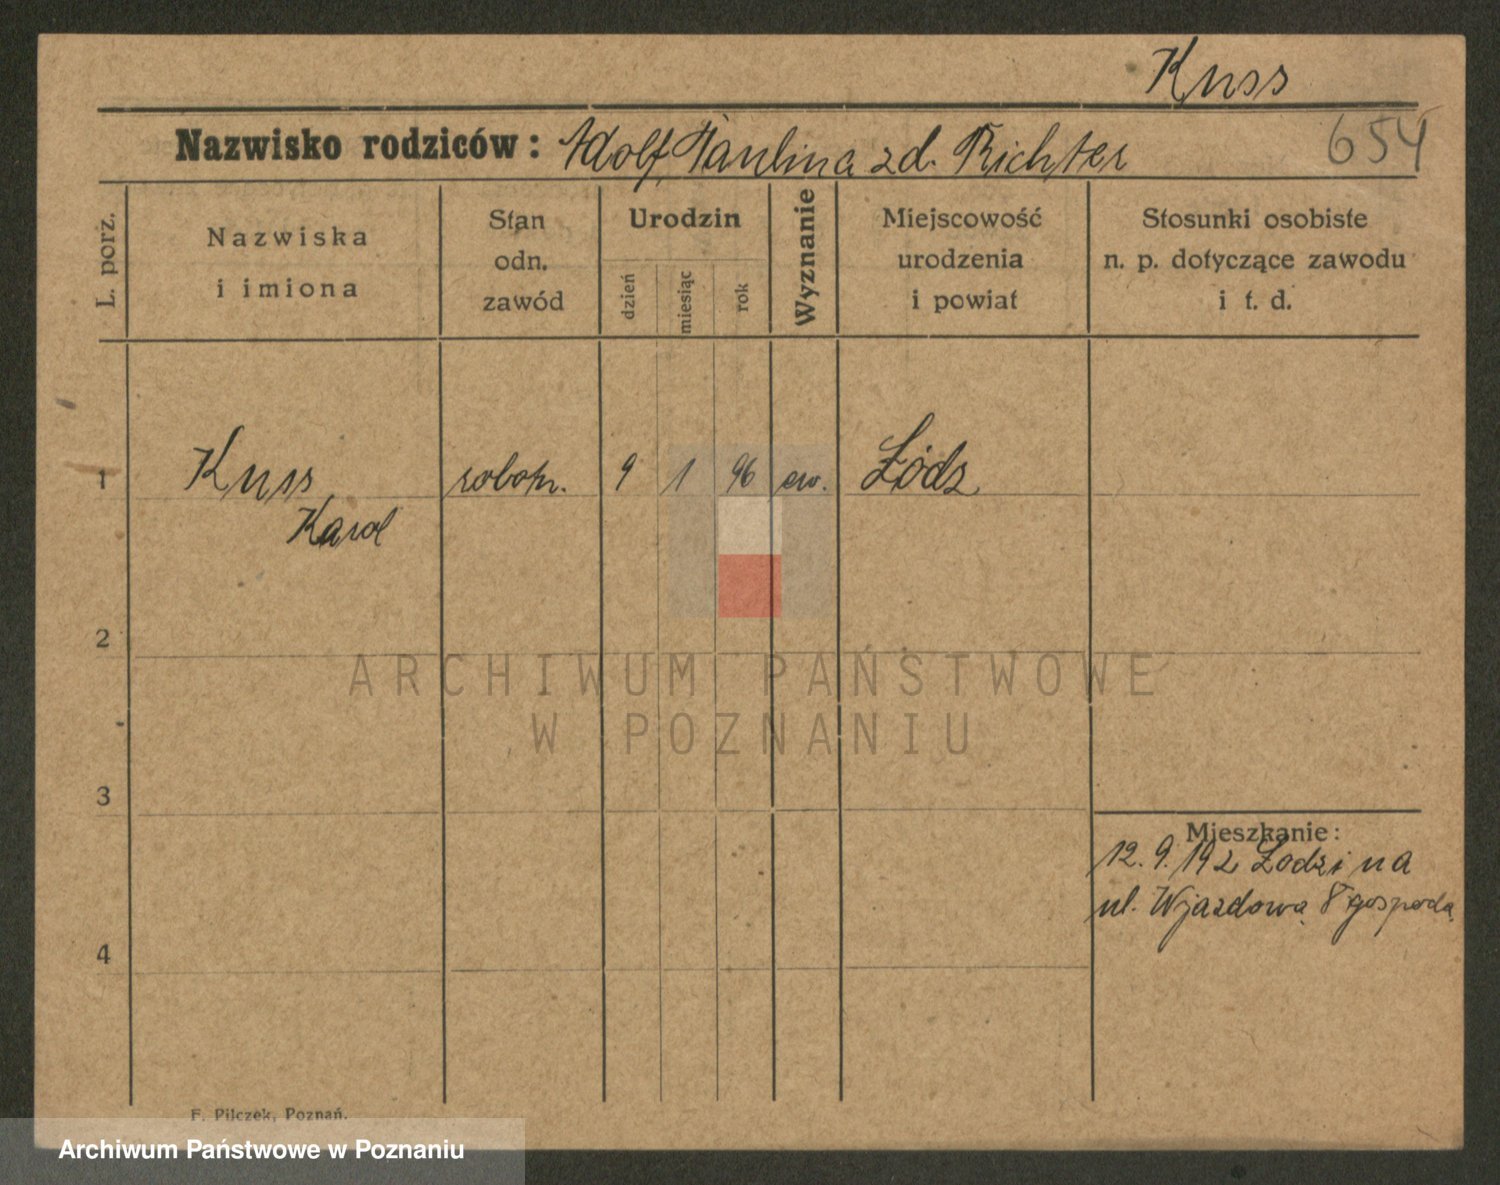 Kuss
654
Nazwisko rodziców: Adolf, Paulina zd. Richter
L. porz.
Nazwiska
i imiona
Stan
odn.
zawód
Urodzin
dzień
miesiąc
rok
Wyznanie
Miejscowość
urodzenia
i powiat
Stosunki osobiste
n. p. dotyczące zawodu
i t. d.
1 Kuss robotn. 9 1 96 ew. Łódz
Karol
2
3
4
Mieszkanie:
12. 9. 19 z Łodzi na
ul. Wjazdowa 8 gospoda
F. Pilczek, Poznań.
ARCHIWUM PAŃSTWOWE
W POZNANIU
Archiwum Państwowe w Poznaniu